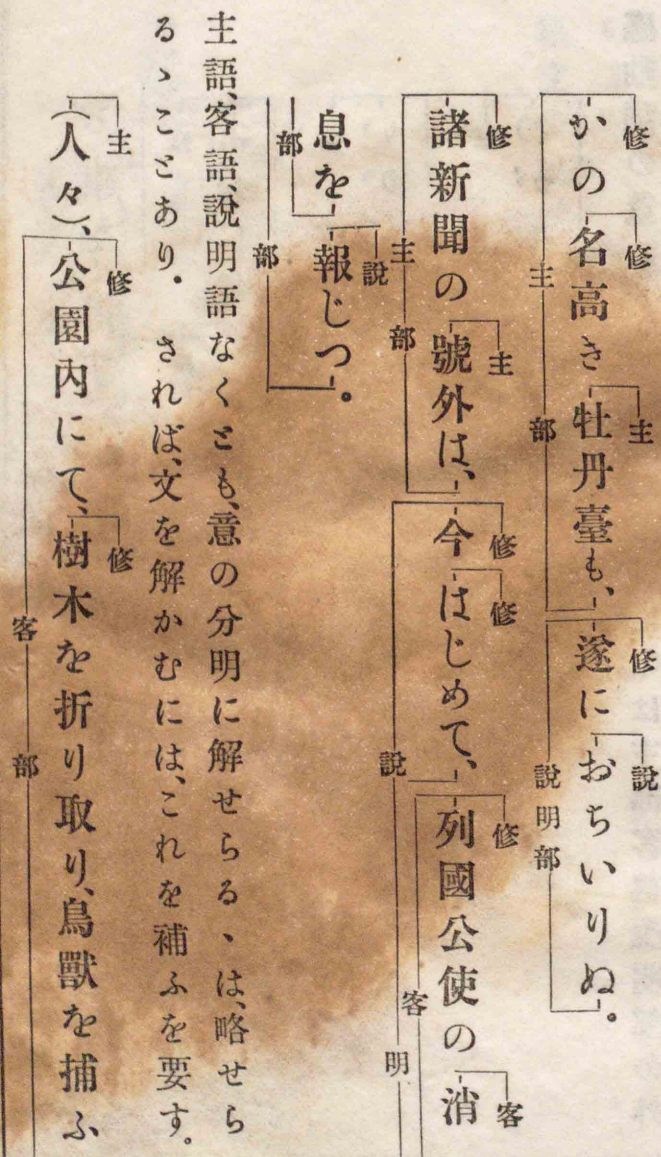 かの名高き牡丹臺も、遂におちいりぬ。
修 修 主 修 説
主部 説明部
諸新聞の號外は、今はじめて、列國公使の消
修 主 修 修 修 客
主部 説明 客
息を報じつ。
説
部 部
主語、客語、説明語なくとも、意の分明に解せらるゝは、略せら
るゝことあり。されば、文を解かむには、これを補ふを要す。
(人々)、公園内にて、樹木を折り取り、鳥獸を捕ふ
主 修 修
客部